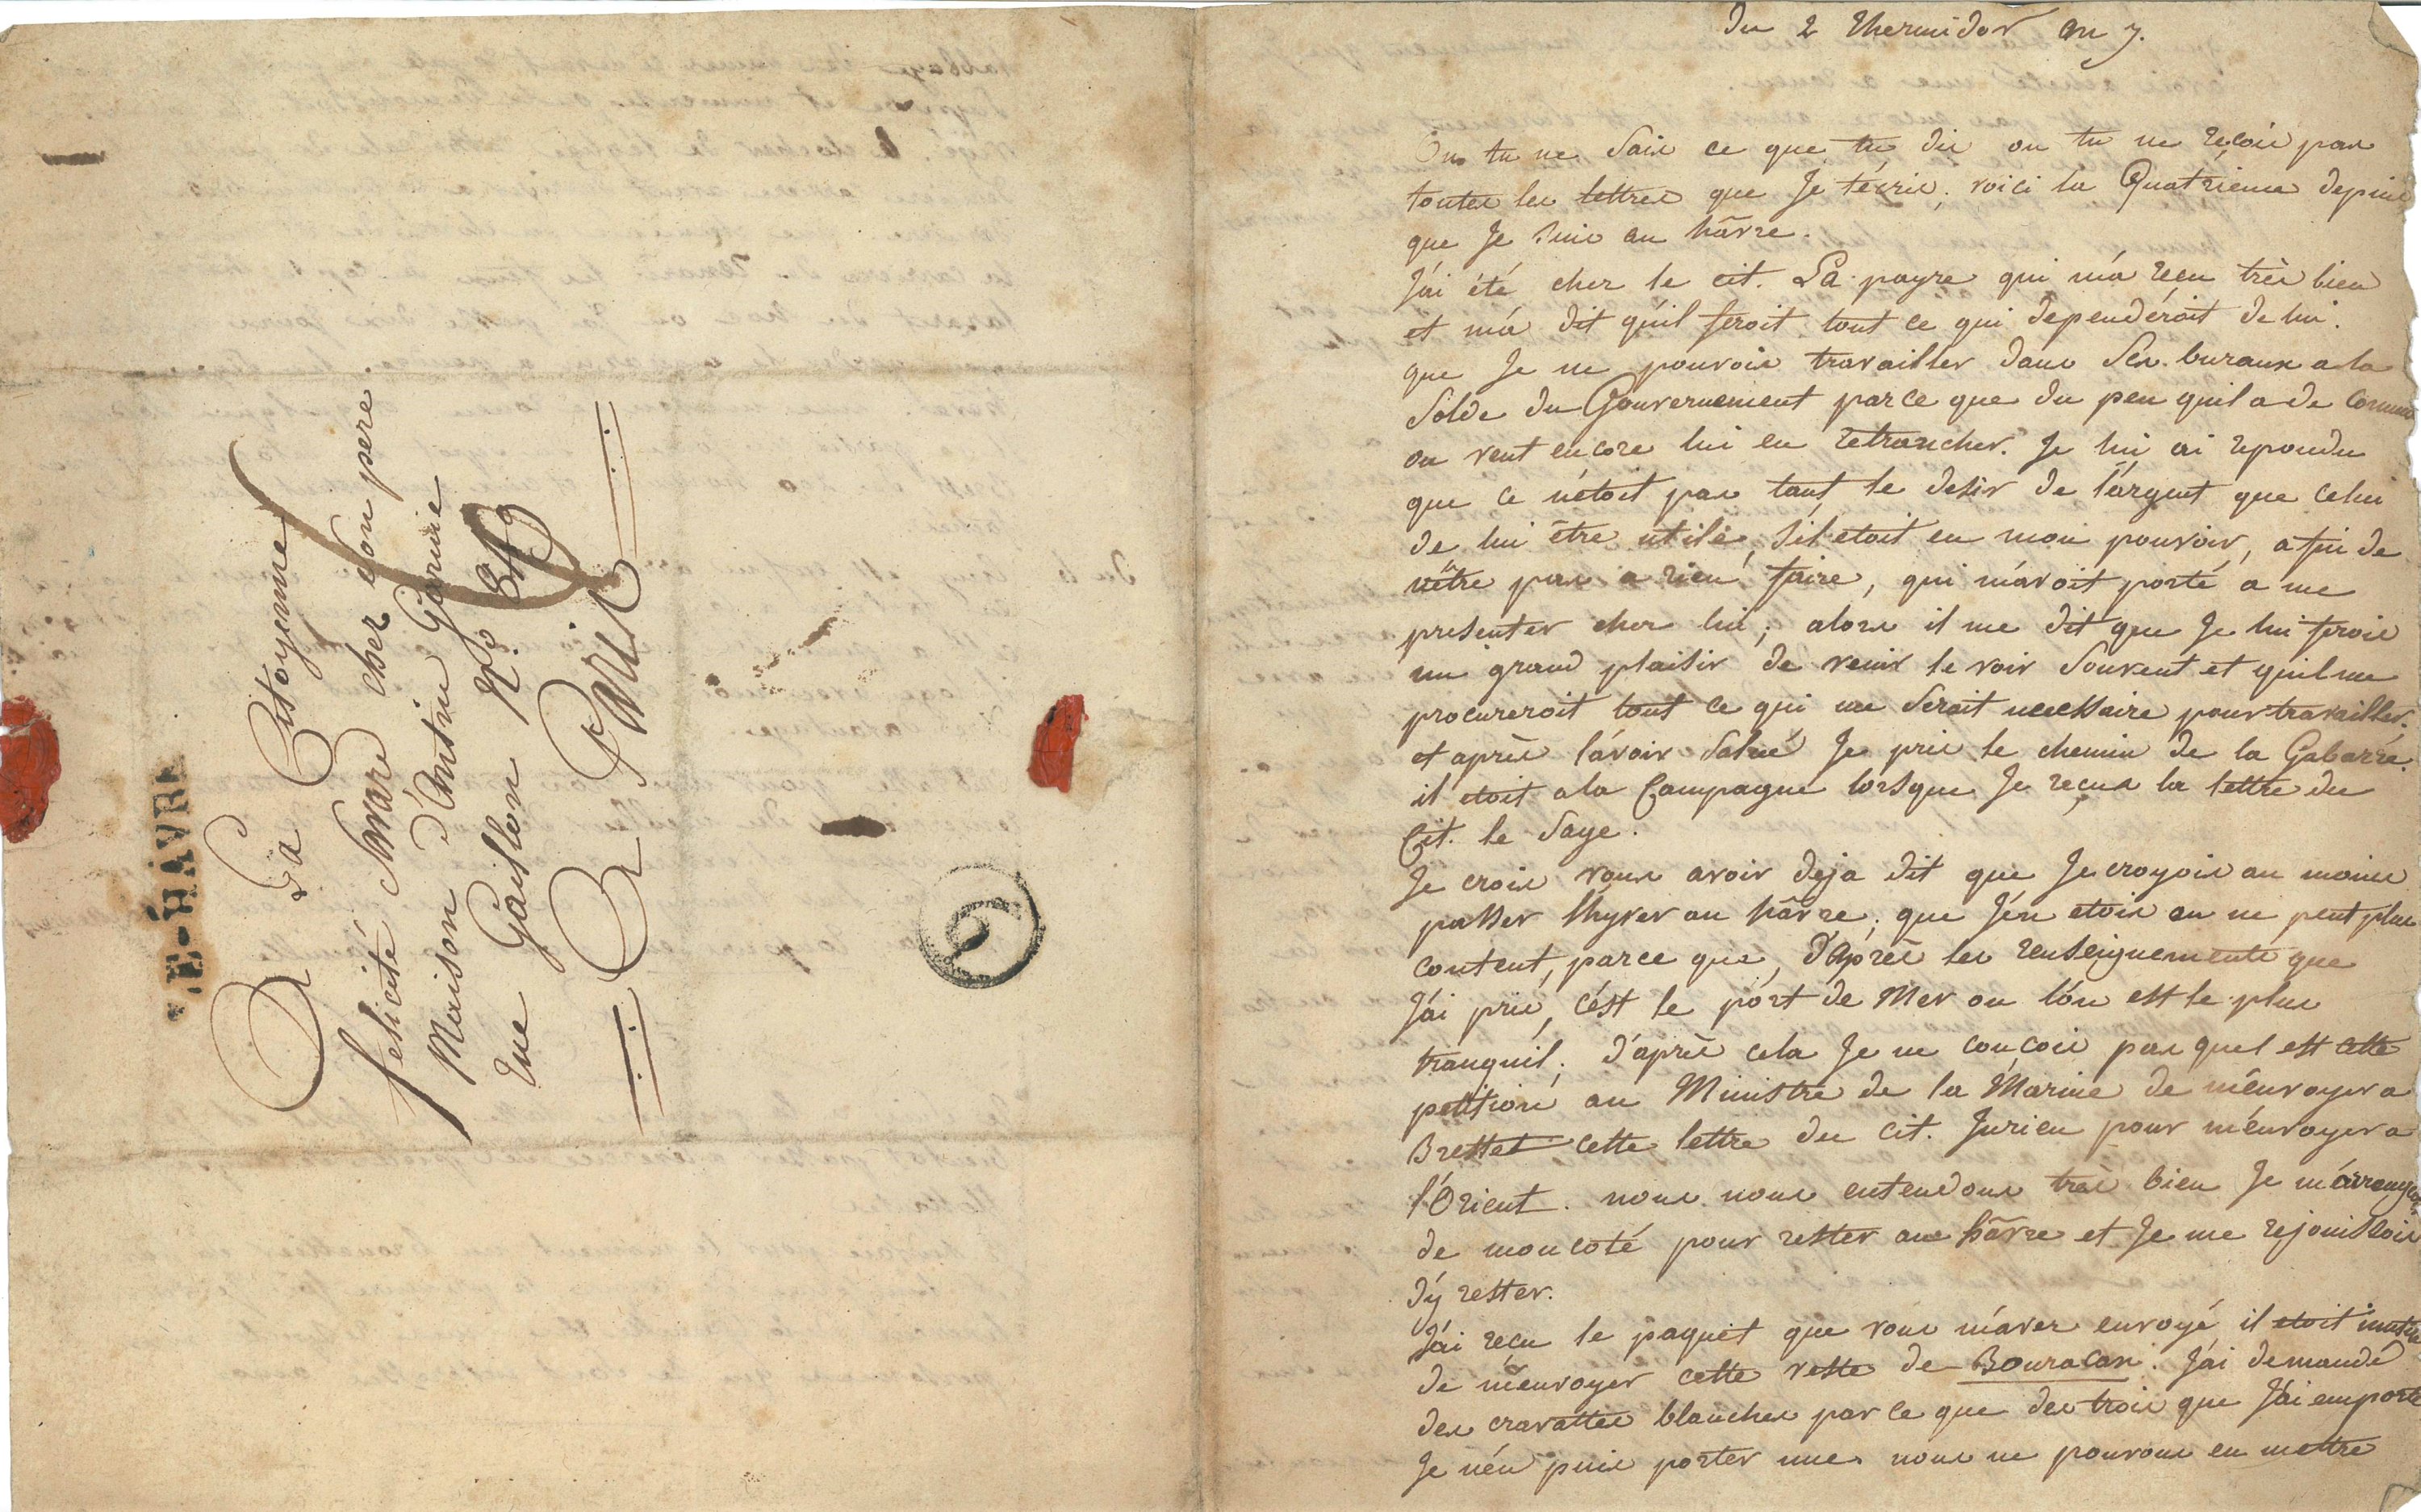 LE-HAVRE
A La Citoyenne
felicité Savard chez son pere.
Maison d'Antin Garnie
Rue Gaillon N.o
A PARIS
6
du 2 thermidor an 7.
Ou tu ne sais ce que tu dis ou tu ne reçois pas
toutes les lettres que Je t'écris; voici la Quatrieme depuis
que Je suis au hâvre.
J'ai été chez le cit. La payre qui m'a recu très bien
et m'a dit qu'il feroit tout ce qui dependéroit de lui.
que Je ne pouvois travailler dans ses buraux a la
solde du Gouvernement parce que du peu quil a de commis
on veut encore lui en retrancher. Je lui ai repondu
que ce n'étoit pas tant le desir de l'argent que celui
de lui être utile, s'il etoit en mon pouvoir, afin de
n'être pas a rien faire, qui m'avoit porté a me
presenter chez lui; alors il me dit que Je lui ferois
un grand plaisir de venir le voir souvent et quil me
procureroit tout ce qui me seroit necessaire pour travailler.
et après l'avoir salué Je pris le chemin de la Gabarre.
il etoit a la Campagne lorsque Je reçus la lettre du
Cit. le Saye.
Je crois vous avoir deja dit que Je croyois au moins
passer lhyver au hâvre; que J'en etois on ne peut plus
content, parce que, d'après les renseignements que
J'ai pris, c'est le port de Mer ou l'on est le plus
tranquil; d'après cela Je ne conçois pas quel est cette
petition au Ministre de la Marine de m'envoyer a
Brest et cette lettre du cit. Jurieu pour m'envoyer a
l'Orient. nous nous entendons très bien Je m'arrangeois
de mon coté pour rester au hâvre et Je me rejouissois
d'y rester.
J'ai reçu le paquet que vous m'avez envoyé, il etoit inutile
de m'envoyer cette veste de Bouracan. J'ai demandé
des cravattes blanches parce que des trois que J'ai emporté
Je n'en puis porter une. nous ne pouvons en mettre